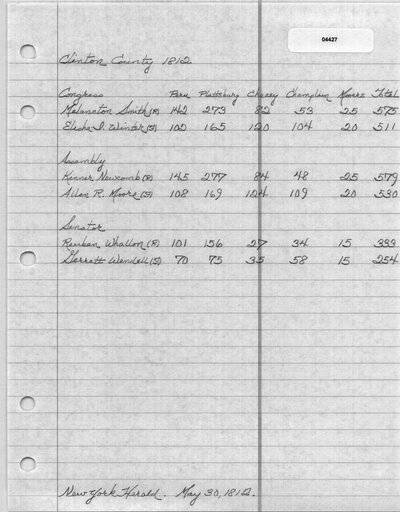 04427
Clinton County 1812
Congress Peru Plattsburg Chazey Champlain Mooers Total
Melancton Smith (R) 142 273 82 53 25 575
Elisha I. Winter (F) 102 165 120 104 20 511
Assembly
Kinner Newcomb (R) 145 277 84 48 25 579
Allen R. Moore (F) 108 169 124 109 20 530
Senator
Reuben Whallon (R) 101 156 27 34 15 333
Gerrett Wendell (F) 70 75 35 58 15 254
New York Herald. May 30, 1812.